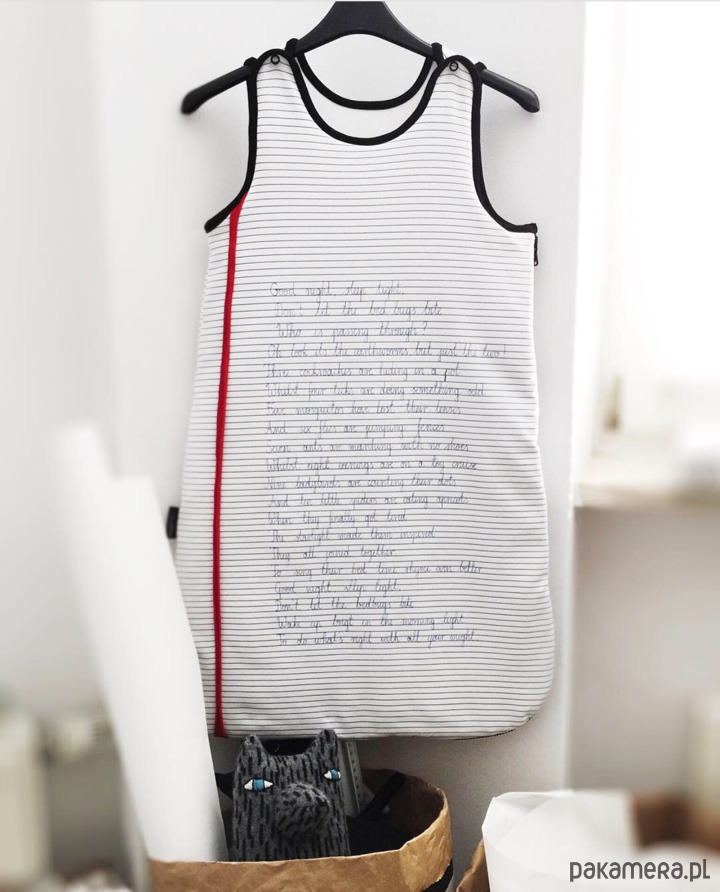 Good night, sleep tight,
Don't let the bed bugs bite
Who is passing through?
Oh look its the earthworms, but just the two!
Three cockroaches are hiding in a pot
Whilst four ticks are doing something odd
Five mosquitos have lost their lenses
And six flies are jumping fences
Seven ants are marching with no shoes
Whilst eight earwigs are on a log cruise
Nine ladybirds are counting their dots
And ten little spiders are eating apricots
When they finally got tired
The starlight made them inspired
They all joined together
To sing their bed time rhyme even better
Good night, sleep tight,
Don't let the bedbugs bite
Wake up brigt in the morning light
To do what's right with all your might.
pakamera.pl